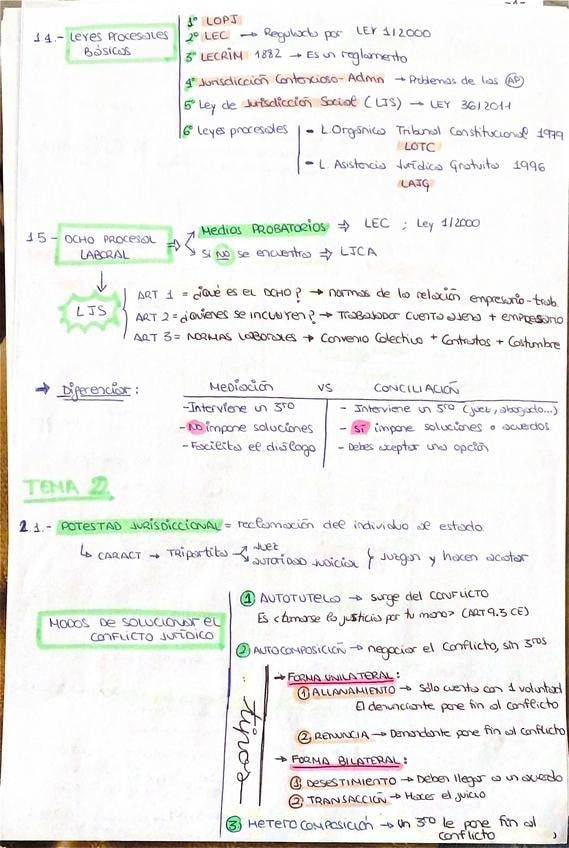 -1-
14.- LEYES PROCESALES BÁSICOS
1º LOPJ
2º LEC → Regulado por LEY 1/2000
3º LECRIM 1882 → Es un reglamento
4º Jurisdicción Contencioso-Admn → Problemas de las AP
5º Ley de Jurisdicción Social (LJS) → LEY 36/2011
6º Leyes procesales
- L Orgánica Tribunal Constitucional 1979
LOTC
- L. Asistencia Jurídica Gratuita 1996
LAJG
15- DCHO PROCESAL LABORAL
⇒ Medios PROBATORIOS ⇒ LEC ; Ley 1/2000
Si NO se encuentra ⇒ LJCA
LJS
ART 1 = ¿Qué es el DCHO? → normas de la relación empresario-trab.
ART 2 = ¿Quienes se incluyen? → TRABAJADOR cuenta ajena + empresario
ART 3 = NORMAS LABORALES → Convenio Colectivo + Contratos + Costumbre
→ Diferenciar:
Mediación VS CONCILIACIÓN
-Interviene un 3ro
-No impone soluciones
-Facilita el diálogo
- Interviene un 3ro (juez, abogado...)
- Sí impone soluciones o acuerdos
- Debes aceptar una opción
TEMA 2
2.1.- POTESTAD JURISDICCIONAL = reclamación del individuo al estado
↳ CARACT → TRIPARTITA
Juez
AUTORIDAD Judicial
} Juzgan y hacen acatar
MODOS DE SOLUCIONAR EL CONFLICTO JURÍDICO
① AUTOTUTELA → surge del CONFLICTO
Es <tomarse la justicia por tu mano> (ART 9.3 CE)
② AUTOCOMPOSICIÓN → negociar el conflicto, sin 3ros
: tipos
→ FORMA UNILATERAL:
① ALLANAMIENTO → Sólo cuenta con 1 voluntad
El denunciante pone fin al conflicto
② RENUNCIA → Demandante pone fin al conflicto
→ FORMA BILATERAL:
① DESESTIMIENTO → Deben llegar a un acuerdo
② TRANSACCIÓN → Hacer el juicio
③ HETEROCOMPOSICIÓN → Un 3ro le pone fin al conflicto